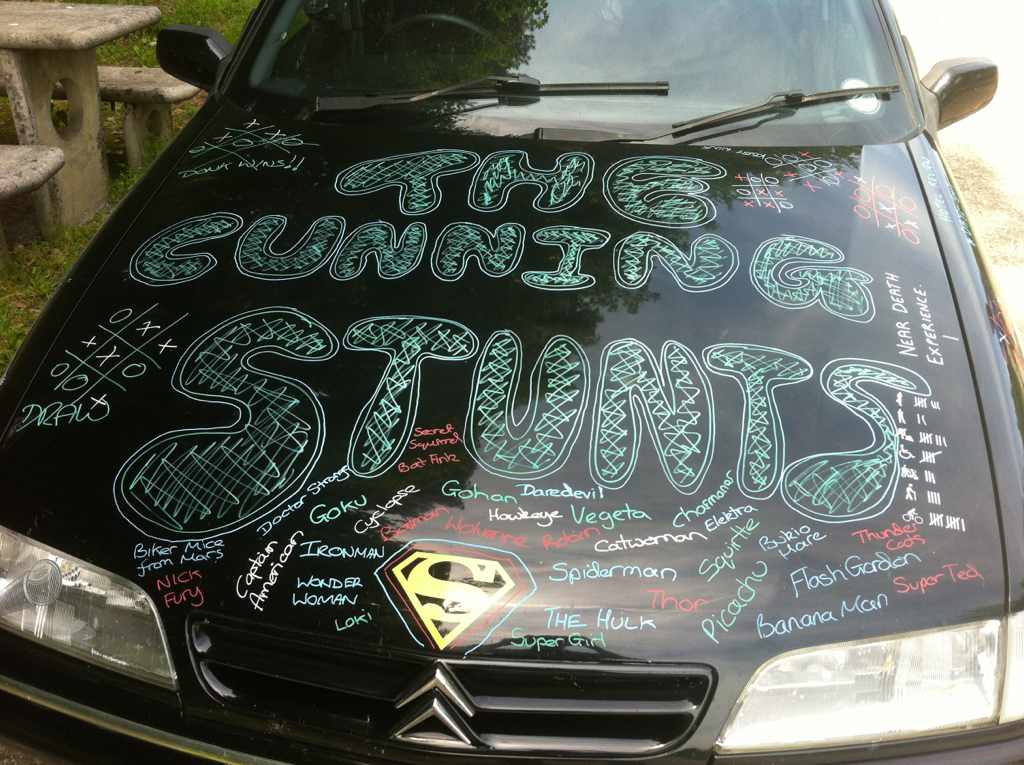 DOUX WINS!!
THE
CUNNING
STUNTS
DRAW
NEAR DEATH
EXPERIENCE.
Secret
Squirrel
Bat Fink
Doctor Strange
Goku
Cyclopse
Gohan
Daredevil
Hawkeye
Vegeta
Charmanar
Elektra
Batman
Wolverine
Robin
Catwoman
Squirtle
Bukio
Hare
Thunder
Cats
Biker Mice
from Mars
NICK
FURY
Captain
American
IRONMAN
WONDER
WOMAN
LOKI
S
Spiderman
Thor
THE HULK
Super Girl
Picachu
Flash Gordan
Super Ted
Banana Man